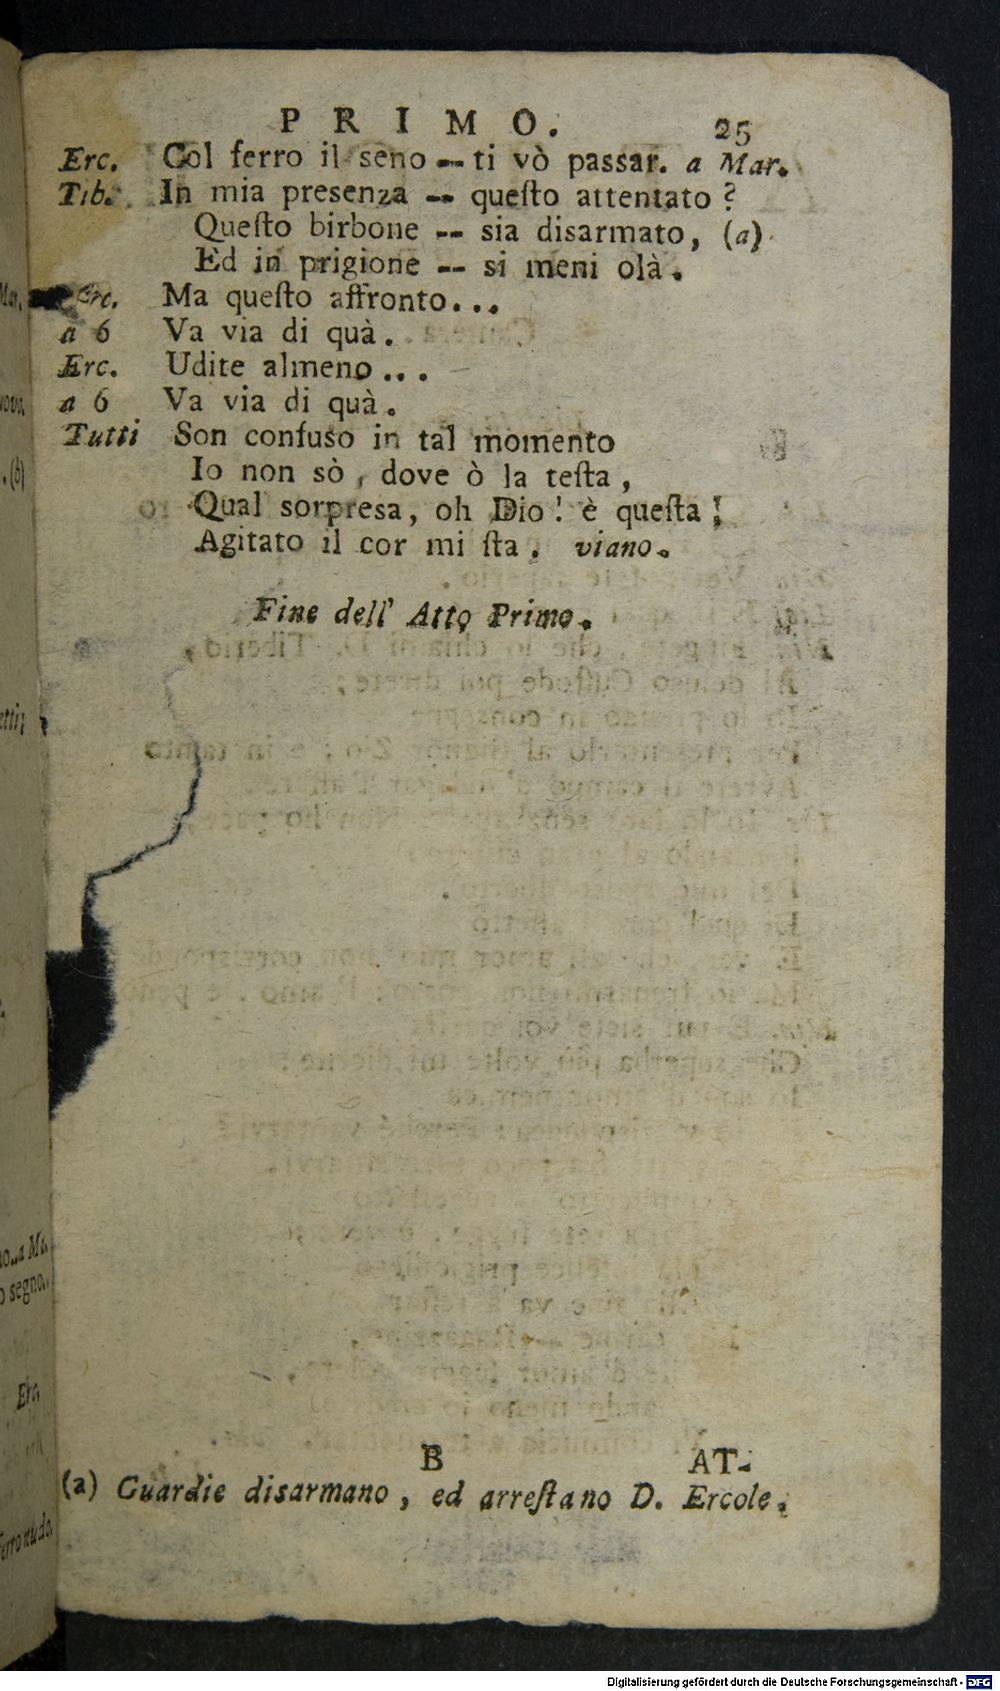 PRIMO. 25
Erc. Col ferro il seno -- ti vò passar. a Mar.
Tib. In mia presenza -- queſto attentato ?
Queſto birbone -- sia disarmato, (a)
Ed in prigione -- si meni olà.
Erc. Ma queſto affronto...
a 6 Va via di quà.
Erc. Udite almeno...
a 6 Va via di quà.
Tutti Son confuso in tal momento
Io non sò, dove ò la teſta,
Qual sorpresa, oh Dio! è queſta!
Agitato il cor mi ſta. viano.
Fine dell' Atto Primo.
B AT-
(a) Guardie disarmano, ed arreſtano D. Ercole.
Digitalisierung gefördert durch die Deutsche Forschungsgemeinschaft - DFG